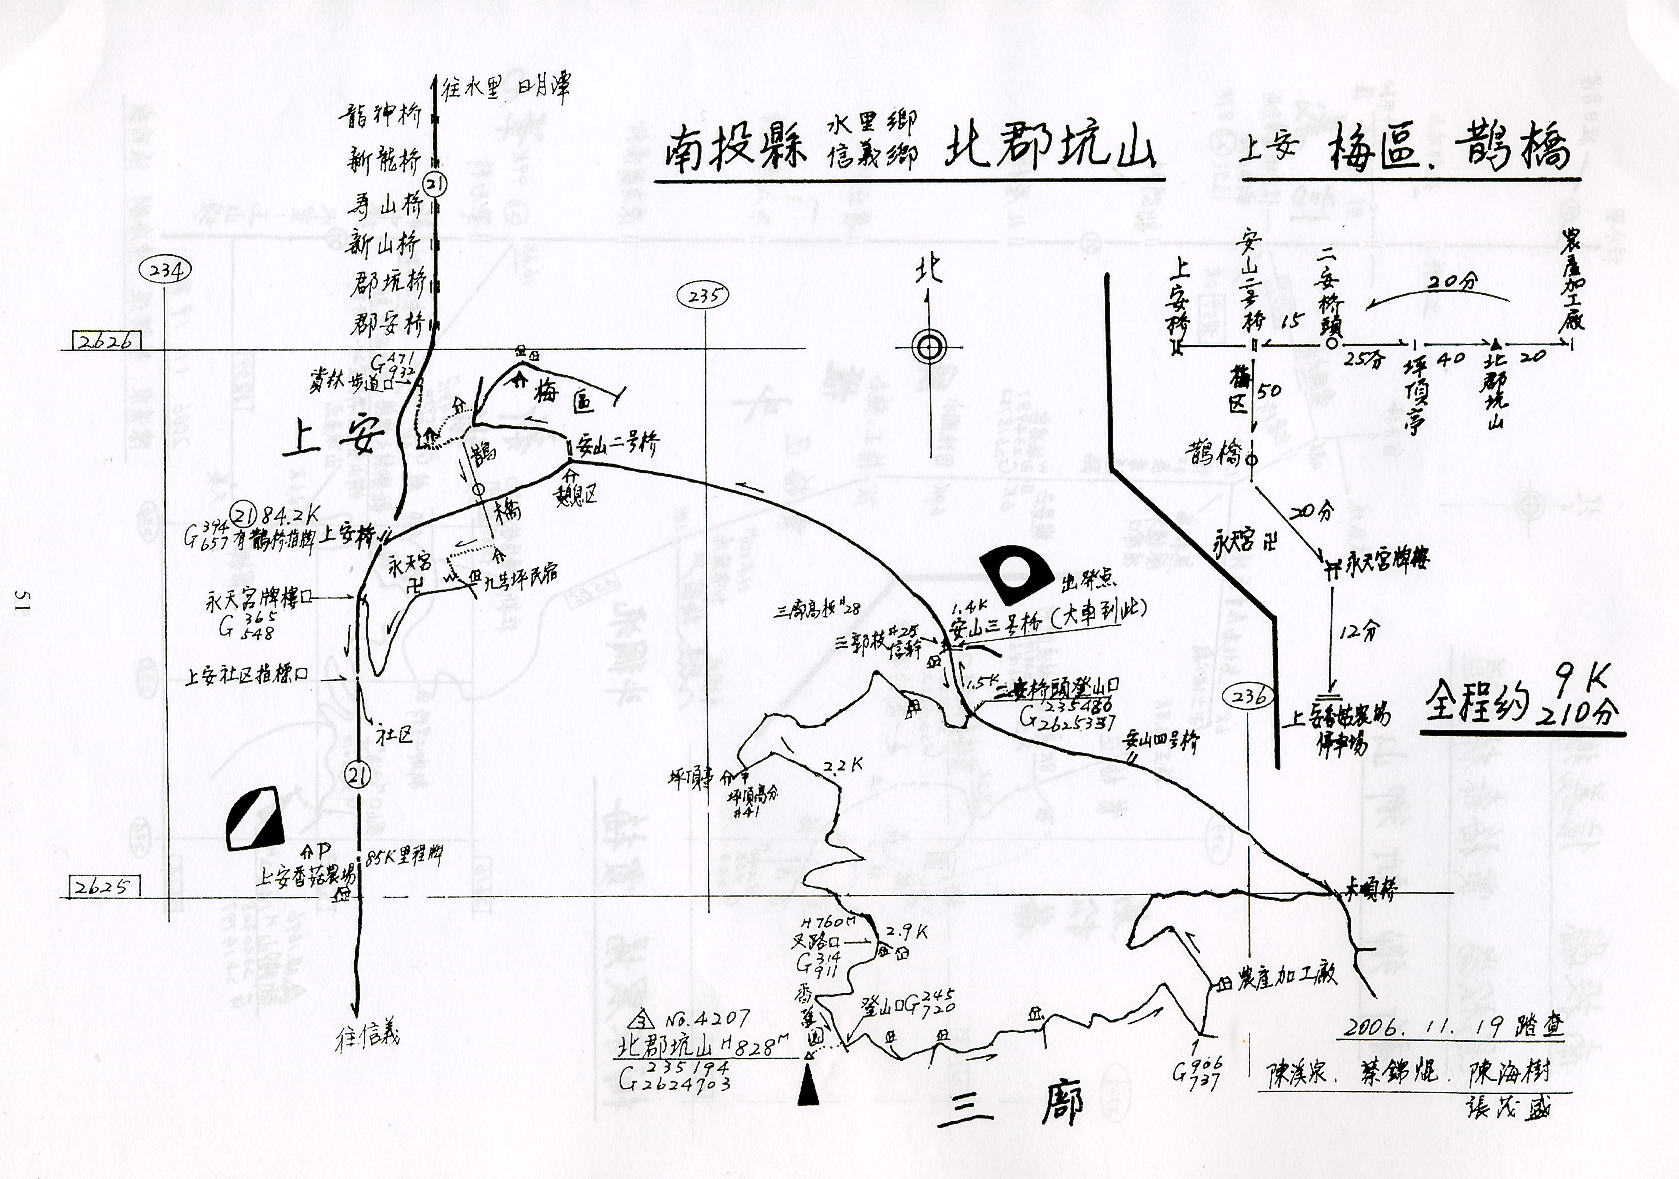 南投縣 水里鄉 信義鄉 北郡坑山
上安 梅區、鵲橋
往水里 日月潭
龍神橋
新龍桥
寿山桥
新山桥
郡坑桥
郡安桥
21
234
235
236
2626
2625
北
G 471 932
賞林步道口
上安
梅區
鵲橋
安山二号桥
憩息区
G 394 657
21 84.2K
有鵲桥指牌
上安桥
永天宮 卍
九芎坪民宿
永天宮牌樓口
G 365 548
上安社区指標口
社区
21
P
85K里程牌
上安香菇農場
往信義
出發点
三廊高枝#28
1.4K
安山三号桥(大車到此)
三郭枝#25
信幹
1.5K
二安桥頭登山口
G 235486 2625337
安山四号桥
坪頂亭
坪頂高分
#41
2.2K
H760M
叉路口
G 314 911
2.9K
香蕉園
登山口G 245 720
No.4207
北郡坑山H828M
G 235194 2624703
三廍
農産加工廠
G 906 737
上安桥
安山二号桥
二安桥頭
農產加工廠
20分
15
25分
40
20
坪頂亭
北郡坑山
梅区
50
鵲橋
20分
永天宮 卍
永天宮牌樓
12分
上安香菇農場
停車場
全程約 9K 210分
2006.11.19踏查
陳溪泉、蔡錦焜、陳海樹
張茂盛
51